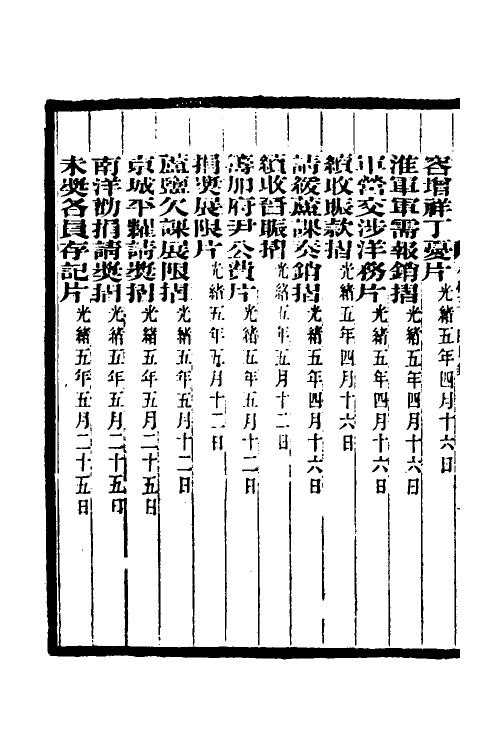 容增祥丁憂片光緒五年四月十六日
淮軍軍需報銷摺光緒五年四月十六日
軍營交涉洋務片光緒五年四月十六日
續收賑款摺光緒五年四月十六日
請緩蘆課奏銷摺光緒五年四月十六日
續收晉賑摺光緒五年五月十二日
籌加府尹公費片光緒五年五月十二日
捐獎展限片光緒五年五月十二日
蘆鹽欠課展限摺光緒五年五月十二日
京城平糶請獎摺光緒五年五月二十五日
南洋勸捐請獎摺光緒五年五月二十五日
未獎各員存記片光緒五年五月二十五日